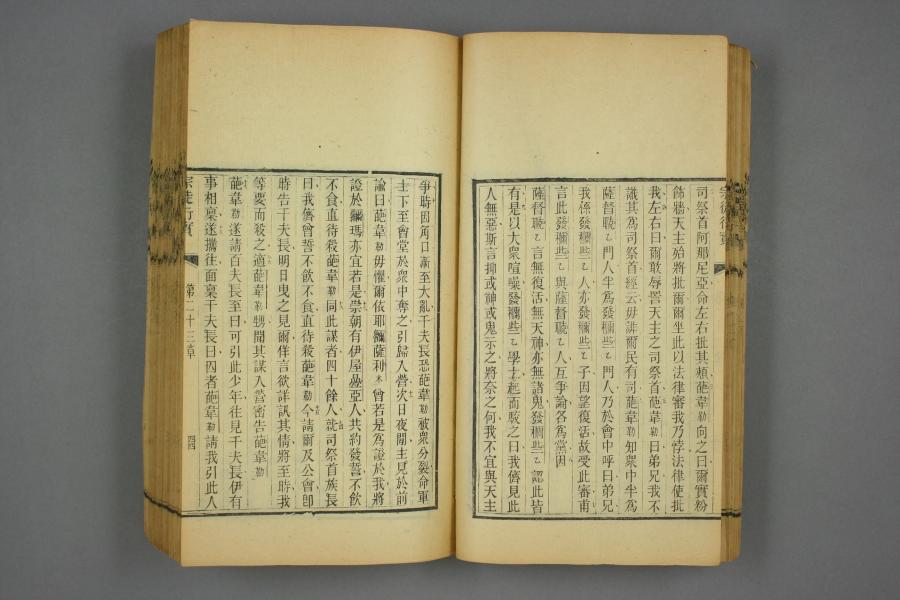 宗徒行實
司祭首阿那尼亞命左右批其頰葩韋勒向之曰爾實粉
飾牆天主始將批爾爾坐此以法律審我乃悖法律使批
我左右曰爾敢辱詈天主之司祭首葩韋勒曰弟兄我不
識其爲司祭首經云毋誹爾民有司葩韋勒知衆中半爲
薩督聡乙門人半爲發穪些乙門人乃於會中呼曰弟兄
我係發穪些乙人亦發穪些乙子因望復活故受此審甫
言此發穪些乙與薩督聡乙人互爭論各爲黨因
薩督聡乙言無復活無天神亦無諸鬼發穪些乙認此皆
有是以大衆喧噪發穪些乙學士起而駁之曰我儕見此
人無惡斯言抑或神或鬼示之將奈之何我不宜與天主
爭時因角口漸至大亂千夫長恐葩韋勒被衆分裂命軍
士下至會堂於衆中奪之引歸入營次日夜間主見於前
諭曰葩韋勒毋懼爾依耶穪薩利木曾若是爲證於我將
證於穪瑪亦宜若是崇朝有伊屋叠亞人共約發誓不飲
不食直待殺葩韋勒同此謀者四十餘人就司祭首族長
曰我儕曾誓不飲不食直待殺葩韋勒今請爾及公會卽
時告千夫長明日曳之見爾佯言欲詳訊其情將至時我
等要而殺之適葩韋勒甥聞其謀入營密告葩韋勒
葩韋勒遂請百夫長至曰可引此少年往見千夫長伊有
事相稟遂攜往面稟千夫長曰囚者葩韋勒請我引此人
宗徒行實 第二十三章 四四